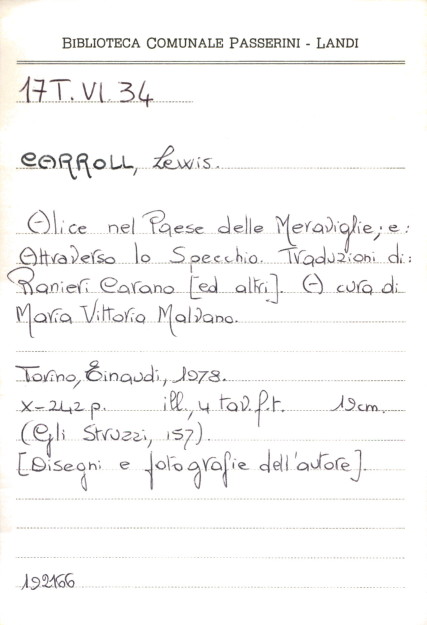 BIBLIOTECA COMUNALE PASSERINI - LANDI
17T.VI.34
CARROLL, Lewis.
Alice nel Paese delle Meraviglie; e:
Attraverso lo Specchio. Traduzioni di:
Ranieri Carano [ed altri]. A cura di
Maria Vittoria Malvano.
Torino, Einaudi, 1978.
X-242 p. ill., 4 tav. f.t. 19cm.
(Gli Struzzi, 157).
[Disegni e fotografie dell'autore].
192166